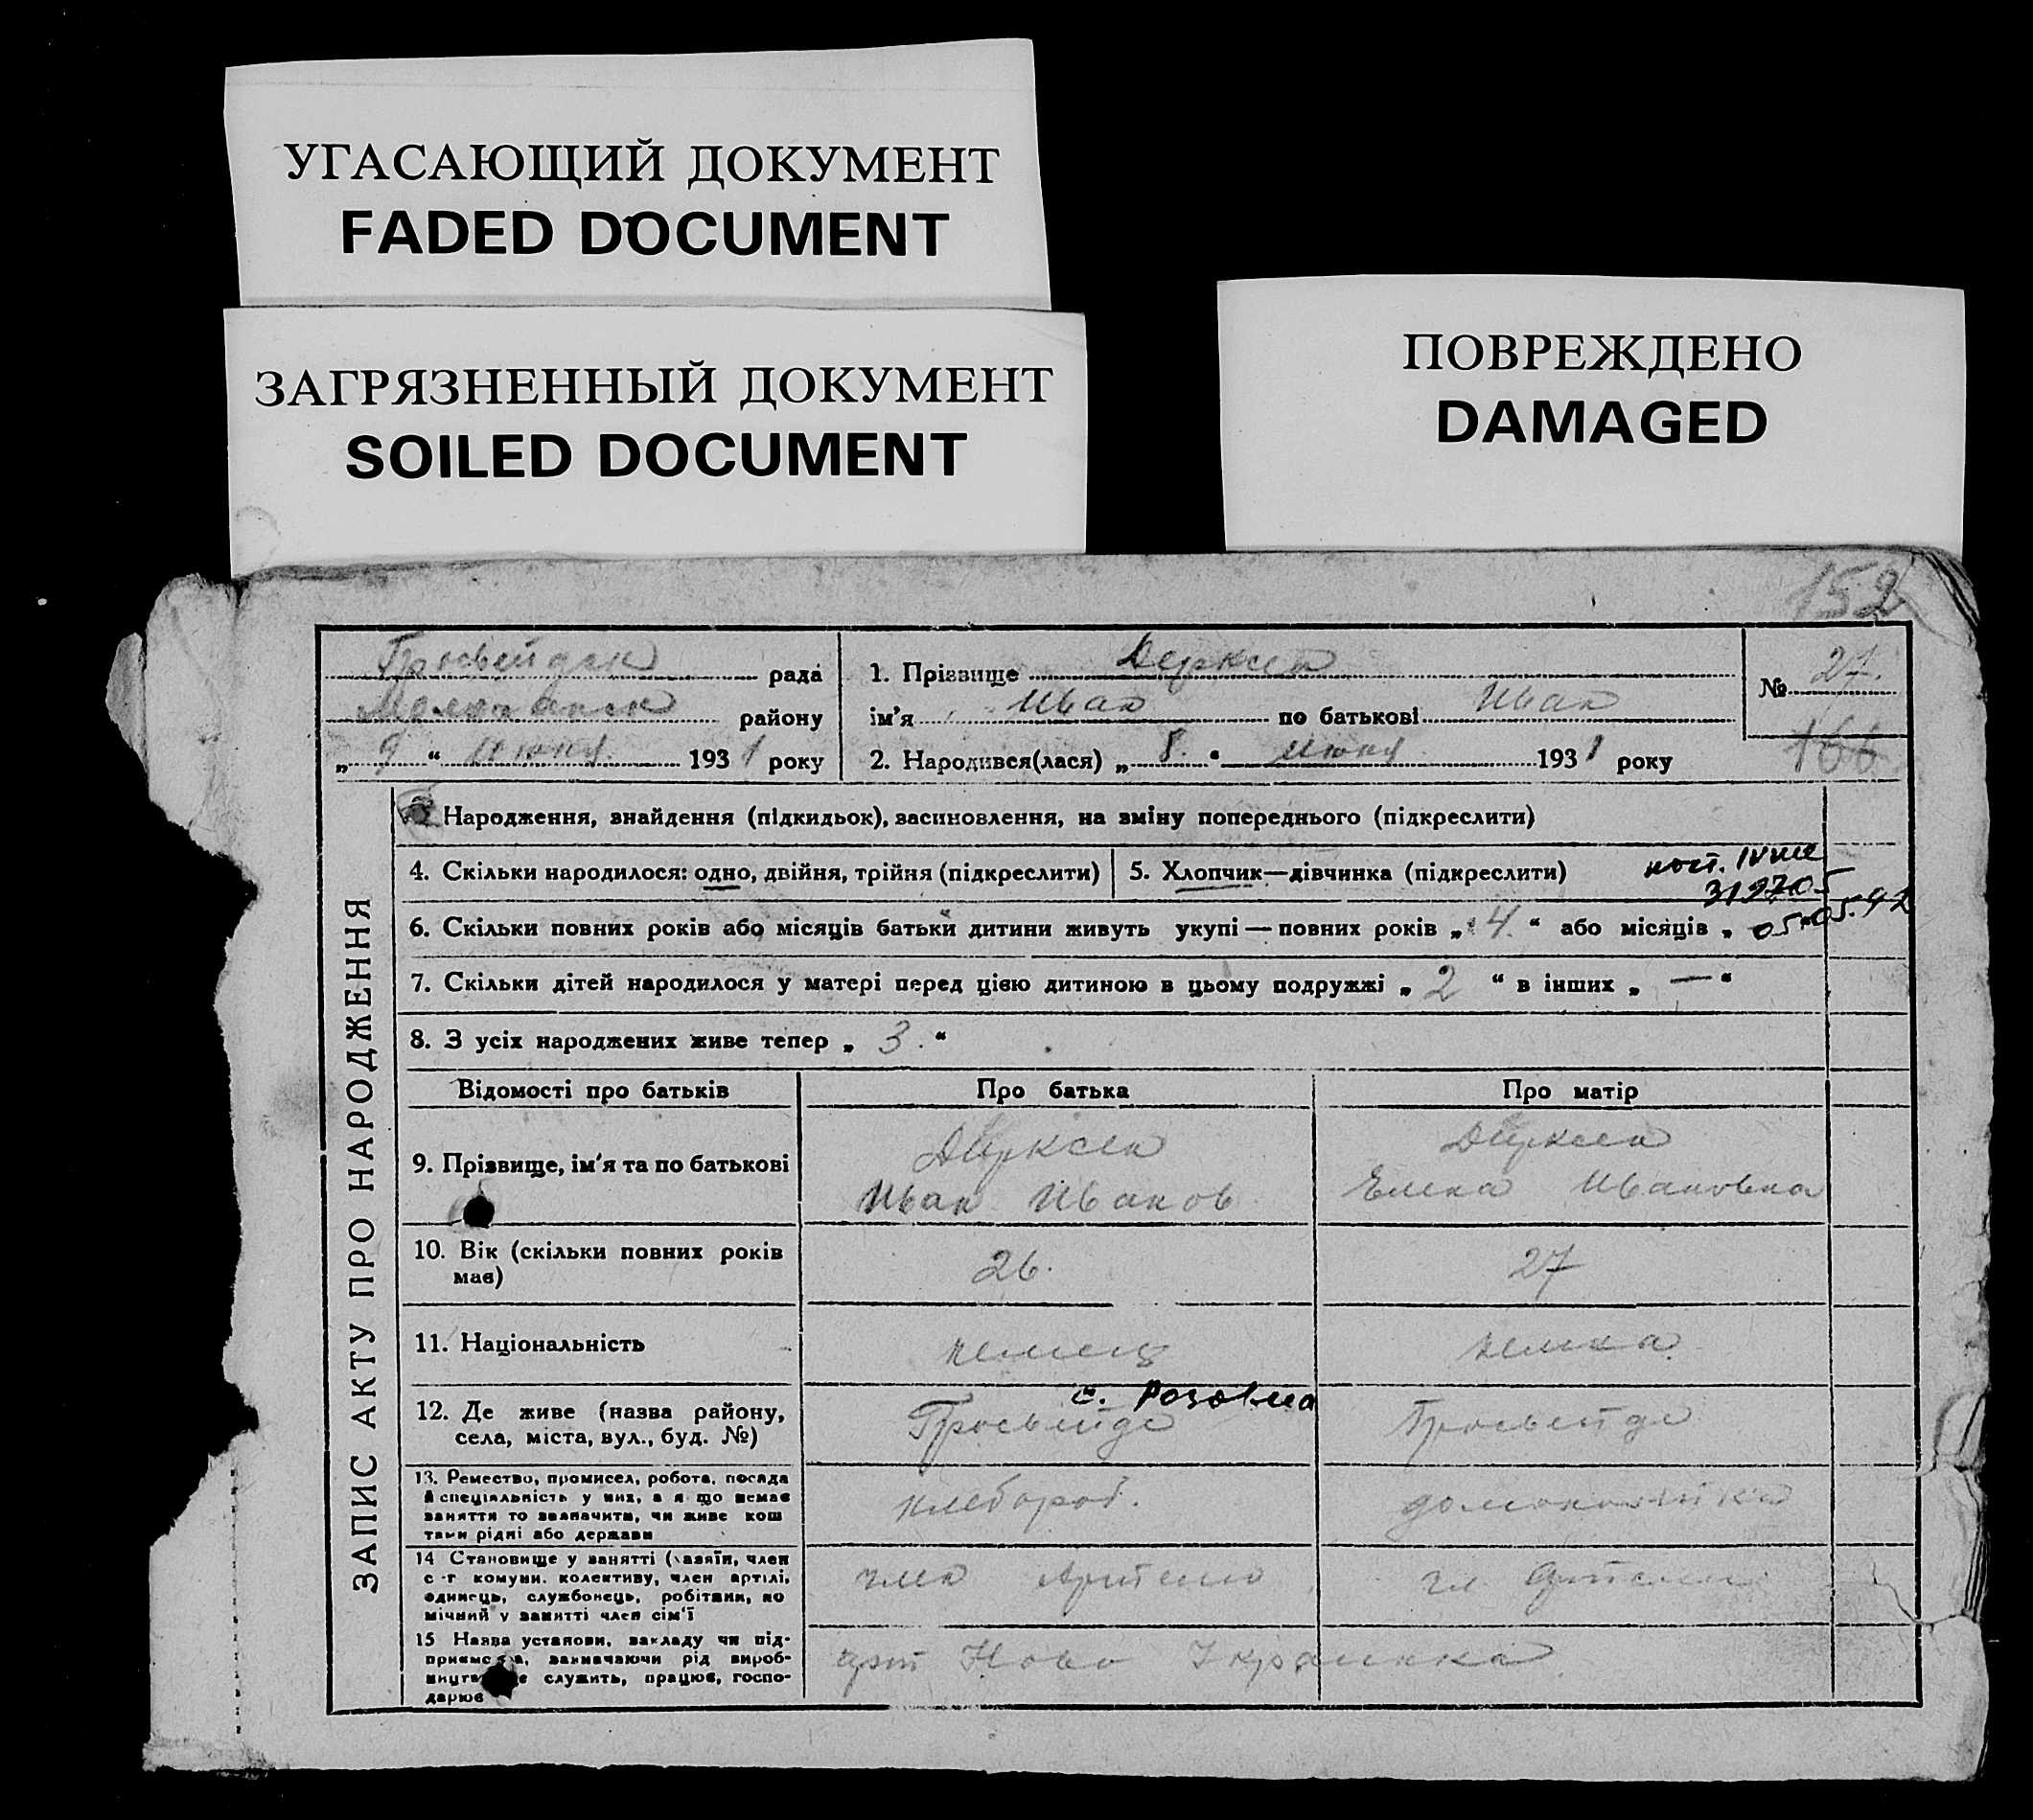 УГАСАЮЩИЙ ДОКУМЕНТ
FADED DOCUMENT
ЗАГРЯЗНЕННЫЙ ДОКУМЕНТ
SOILED DOCUMENT
ПОВРЕЖДЕНО
DAMAGED
152
рада
Молочанск району
„ 9 “ июня. 1931 року
1. Прізвище Дерксен
ім'я Иван по батькові Иван
2. Народився(лася) „ 8. “ июня 1931 року
№ 27.
166
ЗАПИС АКТУ ПРО НАРОДЖЕННЯ
Народження, знайдення (підкидьок), засиновлення, на зміну попереднього (підкреслити)
4. Скільки народилося: одно, двійня, трійня (підкреслити)
5. Хлопчик—дівчинка (підкреслити)
05.05.92
6. Скільки повних років або місяців батьки дитини живуть укупі — повних років „ 4. “ або місяців „
7. Скільки дітей народилося у матері перед цією дитиною в цьому подружжі „ 2 “ в інших „ — “
8. З усіх народжених живе тепер „ 3. “
Відомості про батьків
Про батька
Про матір
9. Прізвище, ім'я та по батькові
Дерксен
Иван Иванов
Дерксен
Елена Ивановна
10. Вік (скільки повних років має)
26.
27
11. Національність
немец
немка
12. Де живе (назва району,
села, міста, вул., буд. №)
с. Розовка
Гросвейде
Гросвейде
13. Ремество, промисел, робота, посада
й спеціяльність у них, а якщо немає
заняття то зазначити, чи живе кош
тами рідні або держави
хлебороб.
домохозяйка
14 Становище у занятті (хазяїн, член
с-г комуни. колективу, член артілі,
одинець, службовець, робітник, по
мічний у занятті член сім'ї
член Артели
чл Артели
15 Назва установи, закладу чи під-
приємства, зазначаючи рід вироб-
ництва де служить, працює, госпо-
дарює
арт Ново Украинка